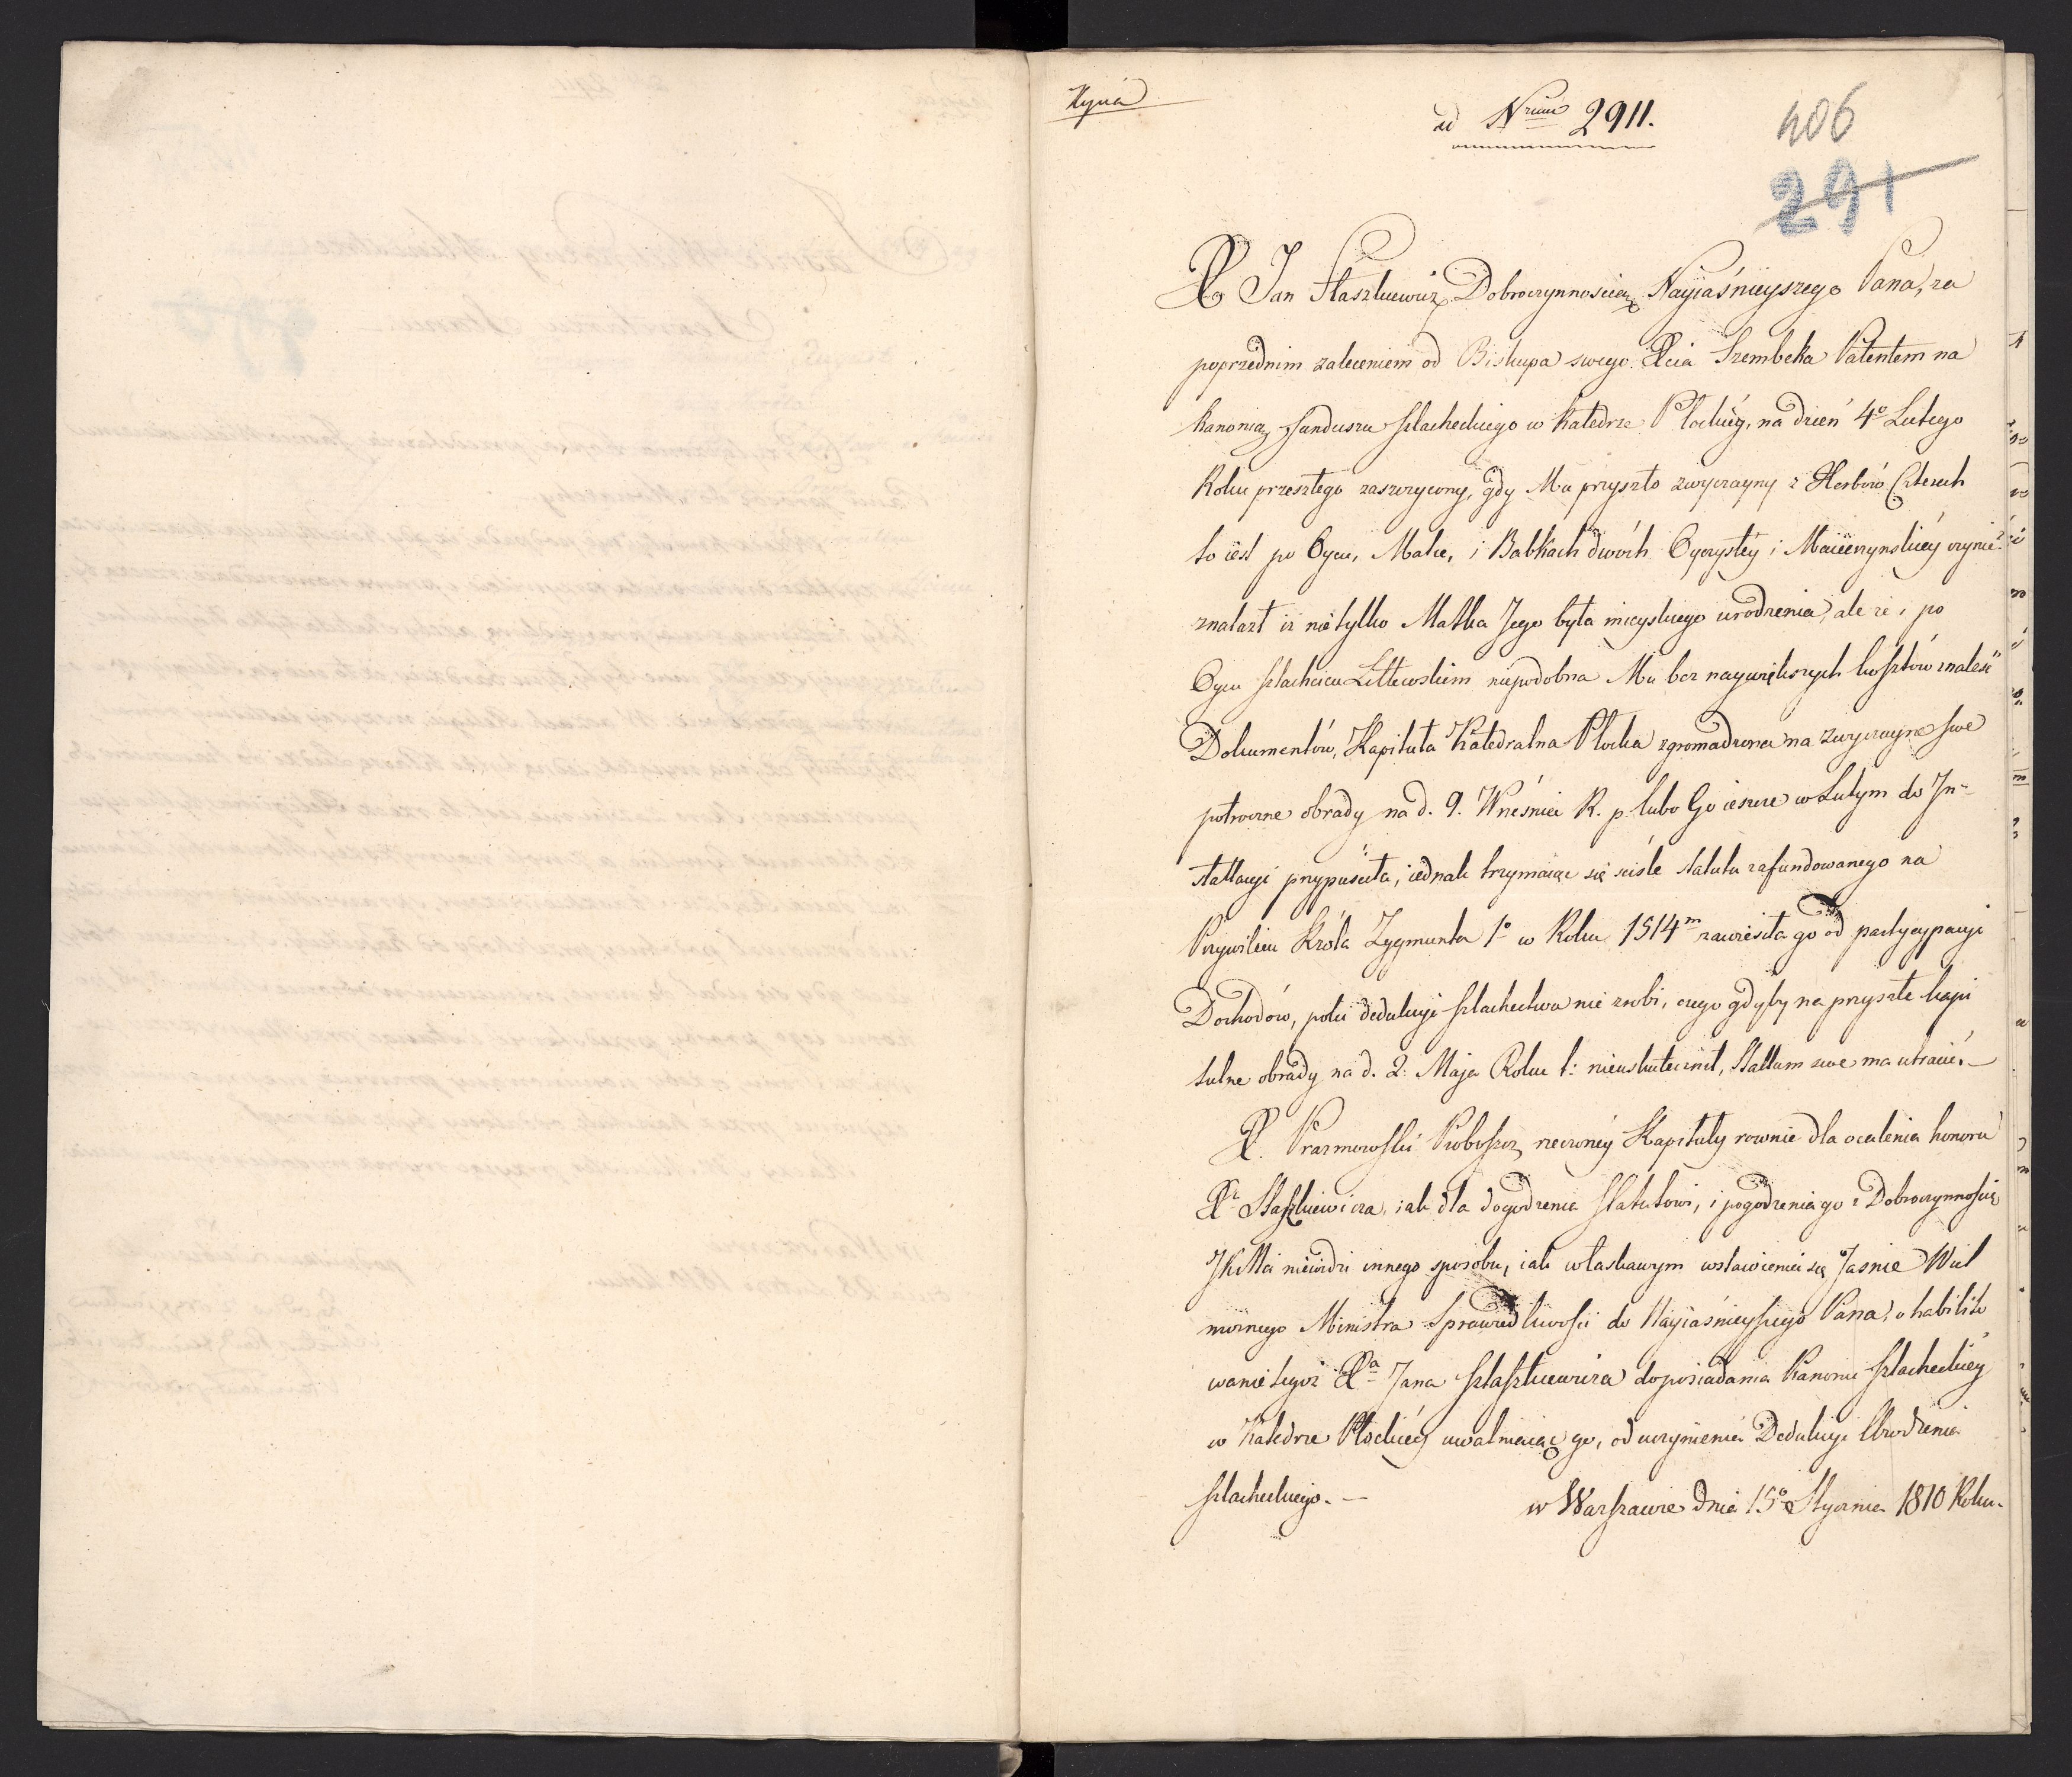 Kopia
ad Nrum 2911.
406
291
X. Jan Staszkiewicz Dobroczynnością Nayiaśnieyszego Pana, za
poprzednim zaleceniem od Biskupa swego Xcia Szembeka Patentem na
Kanonią funduszu szlacheckiego w Katedrze Płockiéy, na dzień 4o Lutego
Roku przeszłego zaszczycony, gdy Mu przyszło zwyczayny z Herbów Czterech
to iest po Oycu, Matce, i Babkach dwóch Oyczystéy i Macierzynskiéy czynić
znalazł iż nie tylko Matka Jego była mieyskiego urodzenia, ale że i po
Oycu szlachcicu Littewskim niepodobna Mu bez naywiększych kosztów znaleść
Dokumentów, Kapituła Katedralna Płocka zgromadzona na zwyczayne swe
półroczne obrady na d. 9. Wrześnie R. p. lubo Go ieszcze w Lutym do In-
stallacyi przypuściła, iednak trzymaiąc się sciśle statutu zafundowanego na
Przywileiu Króla Zygmunta 1o w Roku 1514m zawiesiła go od partycypacyi
Dochodów, poki dedukcyi szlachectwa nie zrobi, czego gdyby na przyszłe kapi
tulne obrady na d. 2. Maja Roku t: nieuskutecznił, Stallum swe ma utracić. —
X. Prazmowski Proboszcz rzeczonéy Kapituły rownie dla ocalenia honoru
Xa Staszkiewicza, iak dla dogodzenia statutowi, i pogodzenia go z Dobroczynnością
JKMci niewidzi innego sposobu, iak właskawym wstawieniu się Jasnie Wiel
możnego Ministra Sprawiedliwości do Nayiaśnieyszego Pana, o habilito
wanie tegoż Xa Jana Staszkiewicza do posiadania Kanonii szlacheckiéy
w Katedrze Płockiéy uwalniaiąc go, od uczynienia Dedukcyi Urodzenia
szlacheckiego. —
w Warszawie dnia 15o Stycznia 1810 Roku.